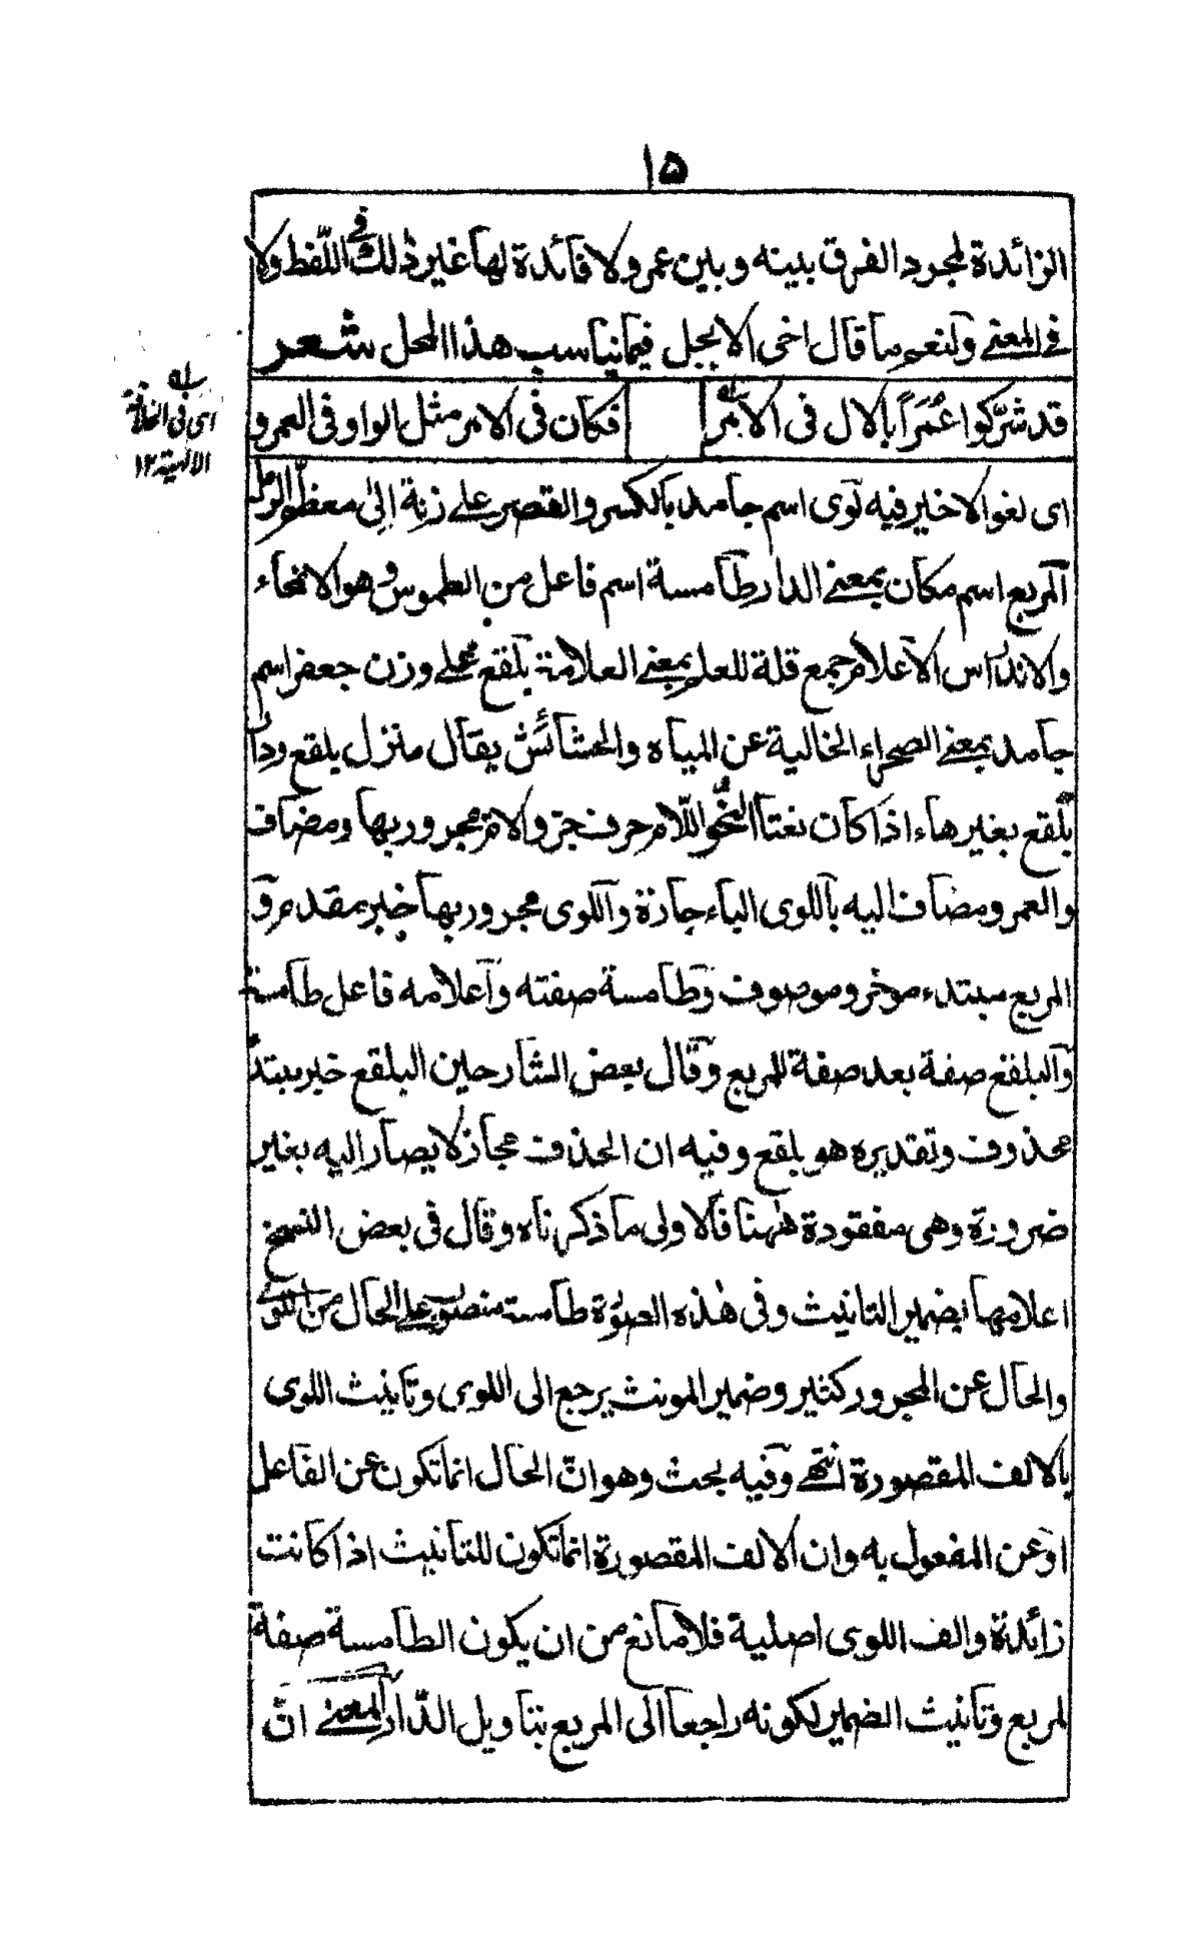 ۱۵
الزائدة لمجرد الفرق بينه وبين عمر ولا فائدة لها غير ذلك في اللفظ ولا
في المعنى ولنعم ما قال اخى الابجل فيما يناسب هذا المحل شعر
قد شرّكوا عُمَراً بالال فى الامر فكان فى الامر مثل الواو فى العمرو
اى لغو الاخير فيه لوى اسم جامد بالكسر والقصر على زنة الى معظم الرمل
المربع اسم مكان بمعنى الدار طامسة اسم فاعل من الطموس وهو الانمحاء
والاندراس الاعلام جمع قلة للعلم بمعنى العلامة بلقع على وزن جعفر اسم
جامد بمعنى الصحراء الخالية عن المياه والحشائش يقال منزل بلقع ودار
بلقع بغير هاء اذا كان نعتا النحو اللام حرف جر والام مجرور بها ومضاف
والعمرو مضاف اليه باللوى الباء جارة واللوى مجرور بها خبر مقدم و
المربع مبتدء موخر وموصوف وطامسة صفته واعلامه فاعل طامسة
والبلقع صفة بعد صفة للمربع وقال بعض الشارحين البلقع خبر مبتدأ
محذوف وتقديره هو بلقع وفيه ان الحذف مجاز لا يصار اليه بغير
ضرورة وهى مفقودة ههنا فالاولى ما ذكرناه وقال فى بعض النسخ
اعلامها بضمير التانيث وفى هذه الصورة طامسة منصوب على الحال من اللوى
والحال عن المجرور كثير وضمير المونث يرجع الى اللوى وتانيث اللوى
بالالف المقصورة انتهى وفيه بحث وهو انّ الحال انما تكون عن الفاعل
او عن المفعول به وان الالف المقصورة انما تكون للتانيث اذا كانت
زائدة والف اللوى اصلية فلا مانع من ان يكون الطامسة صفة
لمربع وتانيث الضمير لكونه راجعا الى المربع بتاويل الدّار المعنى انّ
اى فى الخلافة
الالهية ۱۲